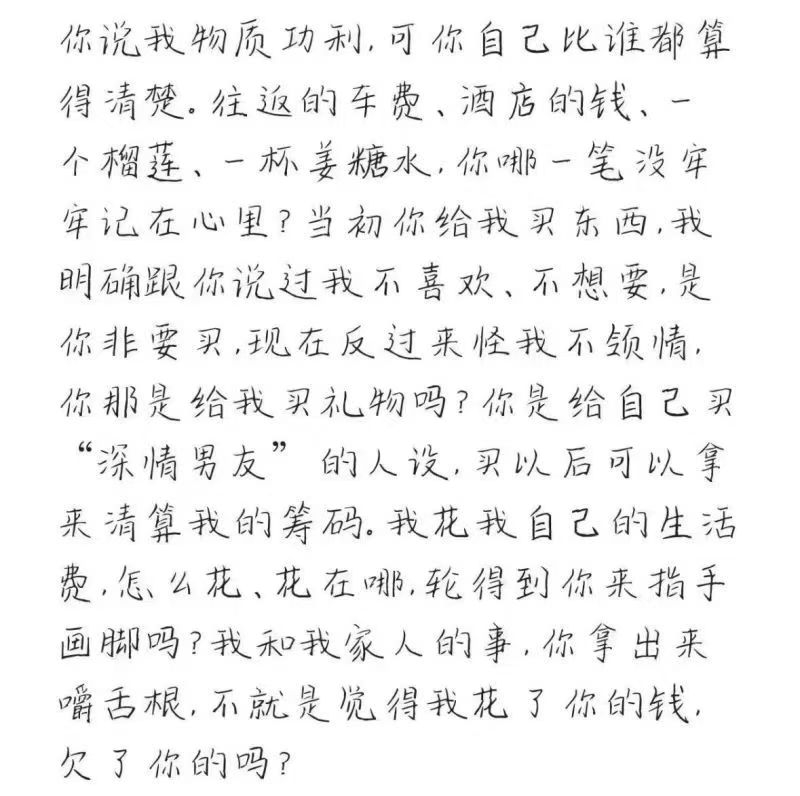 你说我物质功利，可你自己比谁都算
得清楚。往返的车费、酒店的钱、一
个榴莲、一杯姜糖水，你哪一笔没牢
牢记在心里？当初你给我买东西，我
明确跟你说过我不喜欢、不想要，是
你非要买，现在反过来怪我不领情，
你那是给我买礼物吗？你是给自己买
“深情男友” 的人设，买以后可以拿
来清算我的筹码。我花我自己的生活
费，怎么花、花在哪，轮得到你来指手
画脚吗？我和我家人的事，你拿出来
嚼舌根，不就是觉得我花了你的钱，
欠了你的吗？